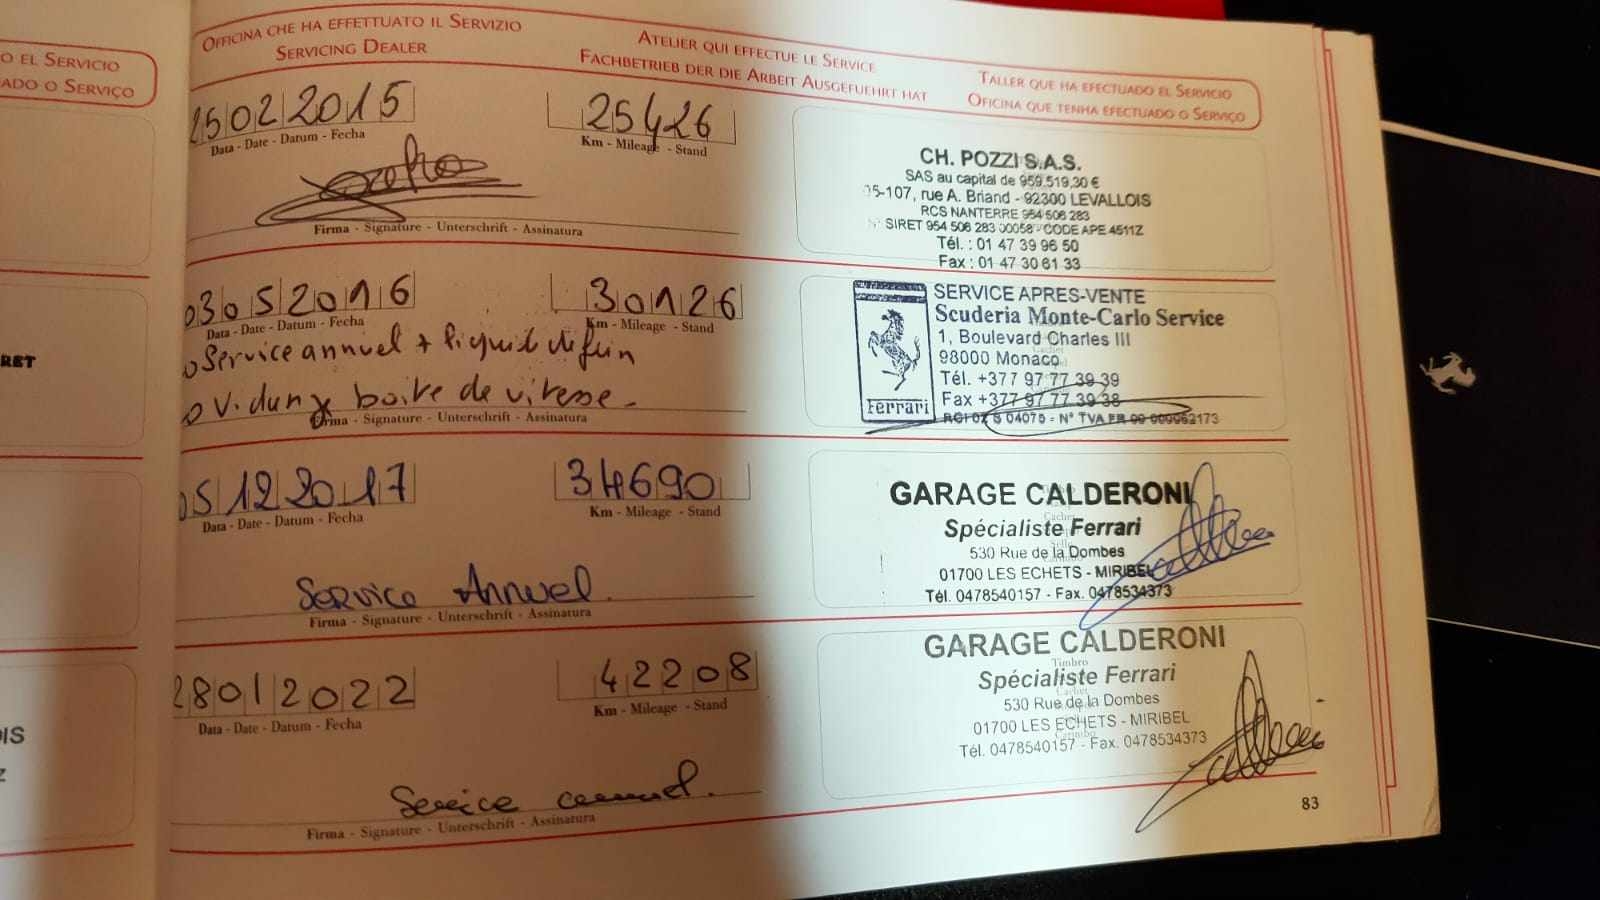 O EL SERVICIO
ADO O SERVIÇO
RET
OFFICINA CHE HA EFFETTUATO IL SERVIZIO
SERVICING DEALER
ATELIER QUI EFFECTUE LE SERVICE
FACHBETRIEB DER DIE ARBEIT AUSGEFUEHRT HAT
TALLER QUE HA EFECTUADO EL SERVICIO
OFICINA QUE TENHA EFECTUADO O SERVIÇO
25022015
25426
Data - Date - Datum - Fecha
Km - Mileage - Stand
Firma - Signature - Unterschrift - Assinatura
CH. POZZI S.A.S.
SAS au capital de 959.519,30 €
05-107, rue A. Briand - 92300 LEVALLOIS
RCS NANTERRE 954 506 283
N° SIRET 954 506 283 00058 - CODE APE 4511Z
Tél. : 01 47 39 96 50
Fax : 01 47 30 61 33
03052016
30126
Data - Date - Datum - Fecha
Km - Mileage - Stand
Service annuel + liquide de frein
Vidange boite de vitesse
Firma - Signature - Unterschrift - Assinatura
Ferrari
SERVICE APRES-VENTE
Scuderia Monte-Carlo Service
1, Boulevard Charles III
98000 Monaco
Tél. +377 97 77 39 39
Fax +377 97 77 39 38
S 04075 - N° TVA FR
05122017
34690
Data - Date - Datum - Fecha
Km - Mileage - Stand
Service Annuel.
Firma - Signature - Unterschrift - Assinatura
GARAGE CALDERONI
Spécialiste Ferrari
530 Rue de la Dombes
01700 LES ECHETS - MIRIBEL
Tél. 0478540157 - Fax. 0478534373
28012022
42208
Data - Date - Datum - Fecha
Km - Mileage - Stand
Service annuel.
Firma - Signature - Unterschrift - Assinatura
GARAGE CALDERONI
Timbro
Spécialiste Ferrari
Cachet
530 Rue de la Dombes
01700 LES ECHETS - MIRIBEL
Carimbo
Tél. 0478540157 - Fax. 0478534373
83